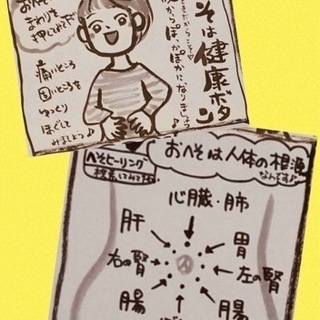 そは健康ボタン
だからこそ
からぽっかぽかになりましょう♪
おへその
まわりを
押してみて
痛いところ
固いところを
ゆっくり
ほぐして
みましょう
へそヒーリング
検索してみてね
おへそは人体の根源
なんです
心臓・肺
肝
胃
右の腎
左の腎
腸
腸